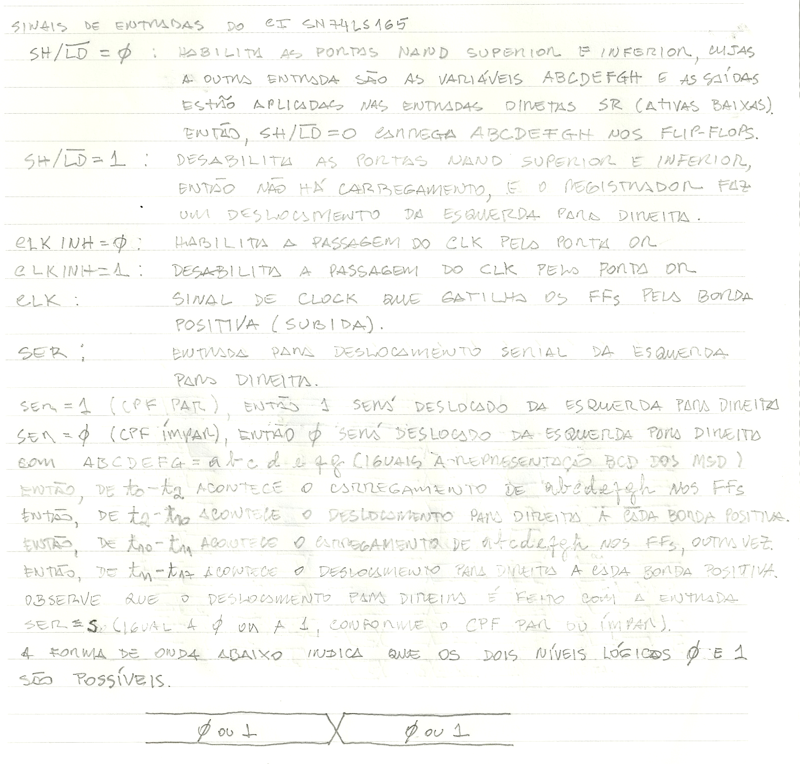 SINAIS DE ENTRADAS DO CI SN74LS165
SH/L̅D̅ = Ø : HABILITA AS PORTAS NAND SUPERIOR E INFERIOR, CUJAS
A OUTRA ENTRADA SÃO AS VARIÁVEIS ABCDEFGH E AS SAÍDAS
ESTÃO APLICADAS NAS ENTRADAS DIRETAS SR (ATIVAS BAIXAS).
ENTÃO, SH/L̅D̅=0 CARREGA ABCDEFGH NOS FLIP-FLOPS.
SH/L̅D̅=1 : DESABILITA AS PORTAS NAND SUPERIOR E INFERIOR,
ENTÃO NÃO HÁ CARREGAMENTO, E O REGISTRADOR FAZ
UM DESLOCAMENTO DA ESQUERDA PARA DIREITA.
CLK INH=Ø : HABILITA A PASSAGEM DO CLK PELA PORTA OR
CLK INH=1 : DESABILITA A PASSAGEM DO CLK PELA PORTA OR
CLK : SINAL DE CLOCK QUE GATILHA OS FFs PELA BORDA
POSITIVA (SUBIDA).
SER : ENTRADA PARA DESLOCAMENTO SERIAL DA ESQUERDA
PARA DIREITA.
SER = 1 (CPF PAR), ENTÃO 1 SERÁ DESLOCADO DA ESQUERDA PARA DIREITA
SER = Ø (CPF ÍMPAR), ENTÃO Ø SERÁ DESLOCADO DA ESQUERDA PARA DIREITA
COM ABCDEFG = abcdefg (IGUAIS À REPRESENTAÇÃO BCD DOS MSD)
ENTÃO, DE t0-t2 ACONTECE O CARREGAMENTO DE abcdefgh NOS FFs
ENTÃO, DE t2-t10 ACONTECE O DESLOCAMENTO PARA DIREITA À CADA BORDA POSITIVA.
ENTÃO, DE t10-t11 ACONTECE O CARREGAMENTO DE abcdefgh NOS FFs, OUTRA VEZ.
ENTÃO, DE t11-t17 ACONTECE O DESLOCAMENTO PARA DIREITA A CADA BORDA POSITIVA.
OBSERVE QUE O DESLOCAMENTO PARA DIREITA É FEITO COM A ENTRADA
SER = S (IGUAL A Ø OU A 1, CONFORME O CPF PAR OU ÍMPAR).
A FORMA DE ONDA ABAIXO INDICA QUE OS DOIS NÍVEIS LÓGICOS Ø E 1
SÃO POSSÍVEIS.
Ø OU 1 Ø OU 1